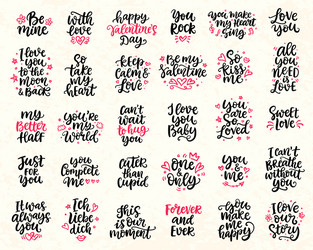 Be mine
with love
happy Valentine's Day
You Rock
you make my Heart Sing
Love you
I love you to the moon & Back
So take my heart
keep Calm & Love
Be my Valentine
So Kiss me
all you need is Love
my Better Half
You're my World
Can't wait to hug you
I love you Baby
You are So Loved
Sweet love
Just for You
You Complete Me
Cuter than Cupid
Once & Only
You & me
I Can't Breathe without you
It was always You
Ich liebe dich
This is our moment
Forever and Ever
You make me happy
I Love our Story